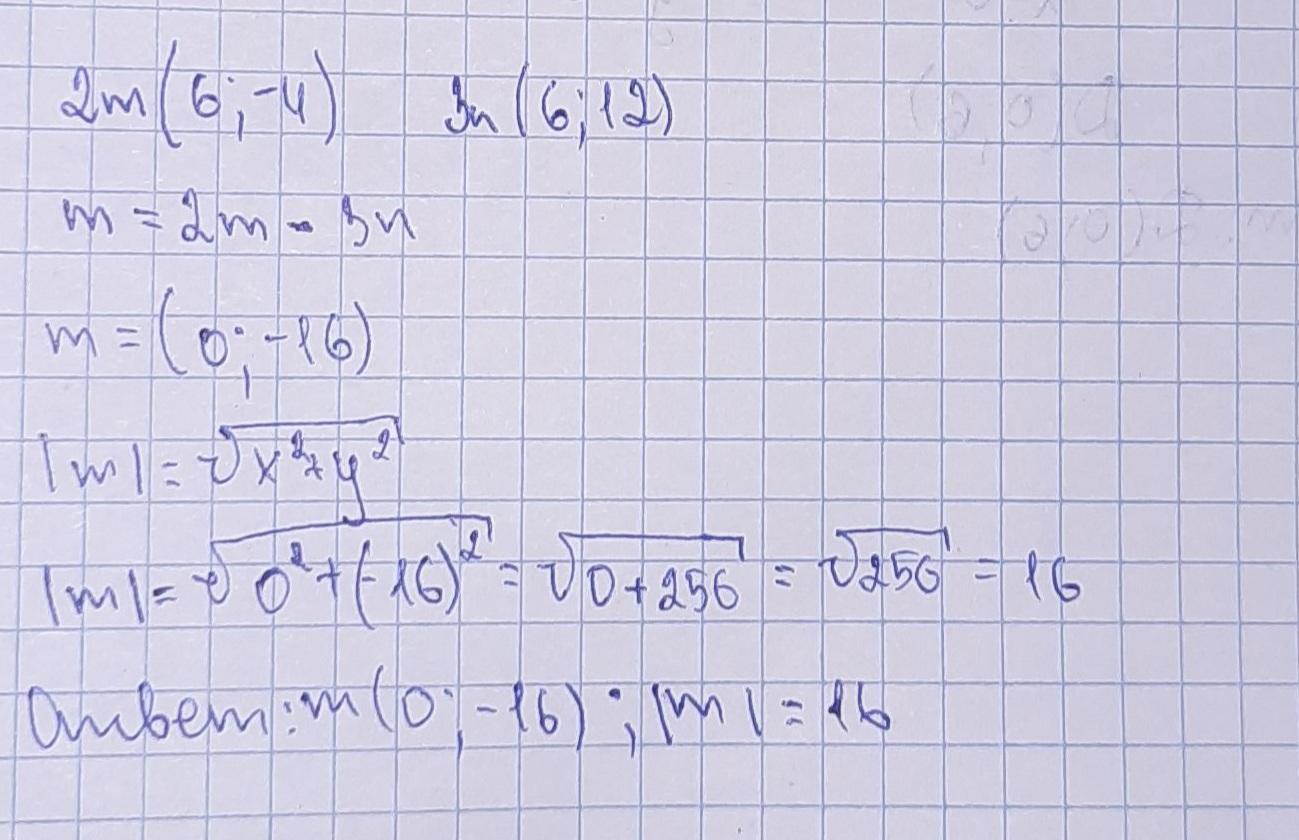 2m(6;-4) 3n(6;12)
m = 2m - 3n
m = (0;-16)
|m| = √x²+y²
|m| = √0²+(-16)² = √0+256 = √256 = 16
Ответ: m(0;-16); |m| = 16